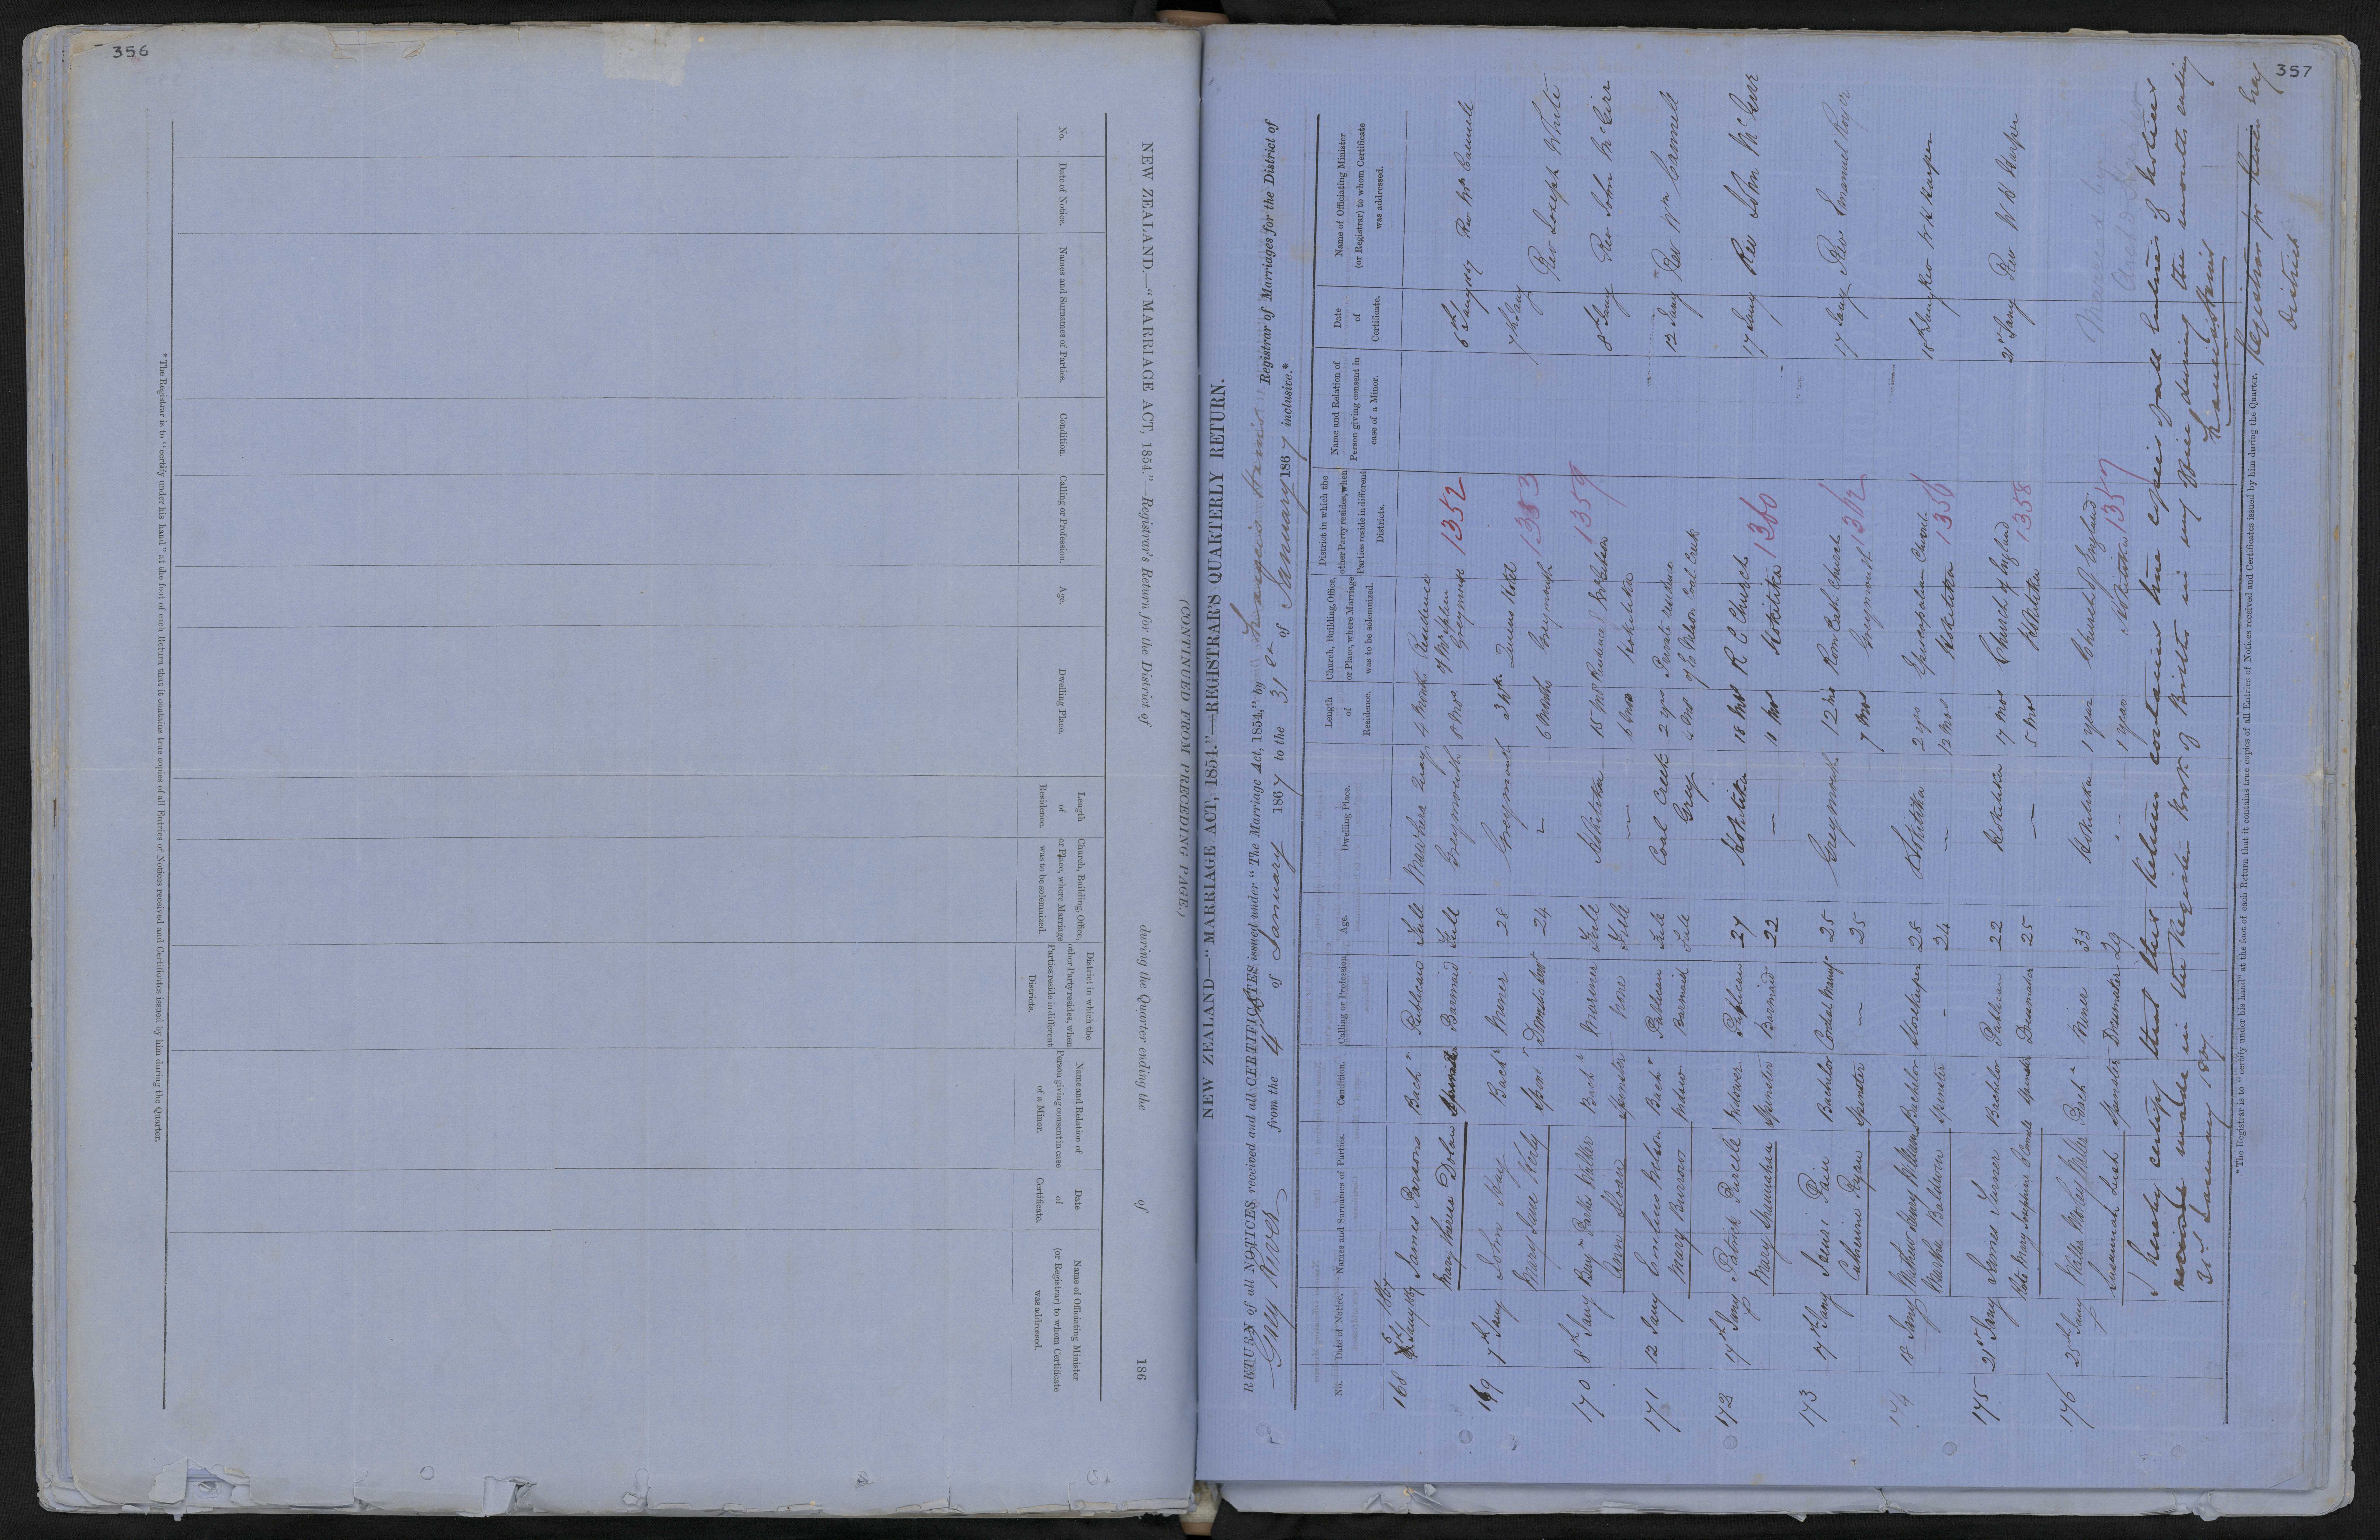 356
NEW ZEALAND.—"MARRIAGE ACT, 1854."—Registrar's Return for the District of during the Quarter ending the of 186
(CONTINUED FROM PRECEDING PAGE.)
No. Date of Notice. Names and Surnames of Parties. Condition. Calling or Profession. Age. Dwelling Place. Length of Residence. Church, Building, Office, or Place, where Marriage was to be solemnized. District in which the other Party resides, when Parties reside in different Districts. Name and Relation of Person giving consent in case of a Minor. Date of Certificate. Name of Officiating Minister (or Registrar) to whom Certificate was addressed.
*The Registrar is to "certify under his hand" at the foot of each Return that it contains true copies of all Entries of Notices received and Certificates issued by him during the Quarter.
357
NEW ZEALAND—"MARRIAGE ACT, 1854."—REGISTRAR'S QUARTERLY RETURN.
RETURN of all NOTICES received and all CERTIFICATES issued under "The Marriage Act, 1854," by Registrar of Marriages for the District of
Grey River from the 4th of January 1867 to the 31st of January 1867 inclusive.*
No. Date of Notice. Names and Surnames of Parties. Condition. Calling or Profession. Age. Dwelling Place. Length of Residence. Church, Building, Office, or Place, where Marriage was to be solemnized. District in which the other Party resides, when Parties reside in different Districts. Name and Relation of Person giving consent in case of a Minor. Date of Certificate. Name of Officiating Minister (or Registrar) to whom Certificate was addressed.
168 Jany 1867 James Parsons Bachr Publican Full Mawhera Quay 4 Month Residence 6th Jany 1867 Rev Wm
Mary Dolan Spinster Barmaid Full Greymouth 8 Mos Greymouth 1352
169 7th Jany John Hay Bachr Miner 28 Greymouth 3 Wk Queens Hotel 7th Jany Rev Joseph White
Mary Jane Spinr Domestic Servt 24 " 6 Months Greymouth 1353
170 8th Jany Benjn Parke Walker Bachr Mariner Full Hokitika 15 Mos Residence 1359 8th Jany Rev John McGirr
Ann Sloane Spinster None Full — 6 Mos Hokitika
171 12 Jany Wilson Bachr Publican Full Coal Creek 2 yrs Private residence 12 Jany Rev Wm
Mary Burrows Widow Barmaid Full Grey 6 Mos of E Wilson Coal Creek
172 17th Jany Patrick Purcell Widower Publican 27 Hokitika 18 Mos R C Church 17 Jany Rev John McGirr
Mary Spinster Barmaid 22 — 11 Mos Hokitika 1360
173 17th Jany Bachelor Cordial Manufr 25 Greymouth 12 Mos Rom Cath Church 17 Jany Rev Emanuel Royer
Catherine Ryan Spinster — 25 7 Mos Greymouth 1362
174 18 Jany Mathew Henry Williams Bachelor Storekeeper 28 Hokitika 2 yrs Episcopalian Church 18th Jany Rev W H Harper
Martha Baldwin Spinster - 24 — 12 Mos Hokitika 1356
175 21st Jany James Turner Bachelor Publican 22 Hokitika 17 Mos Church of England 21st Jany Rev W H Harper
Mary Josephine Spinster Dressmaker 25 — 5 Mos Hokitika 1358
176 25th Jany Walter McKay Miller Bachr Miner 33 Hokitika 1 year Church of England Married by
Susannah Lush Spinster Dressmaker 29 " 1 year Hokitika 1357
I hereby certify that this Return contains true copies of all entries of Notices
made in the Register Book of in my Office during the month ending
31st January 1867.
Registrar for Grey
District
*The Registrar is to "certify under his hand" at the foot of each Return that it contains true copies of all Entries of Notices received and Certificates issued by him during the Quarter.